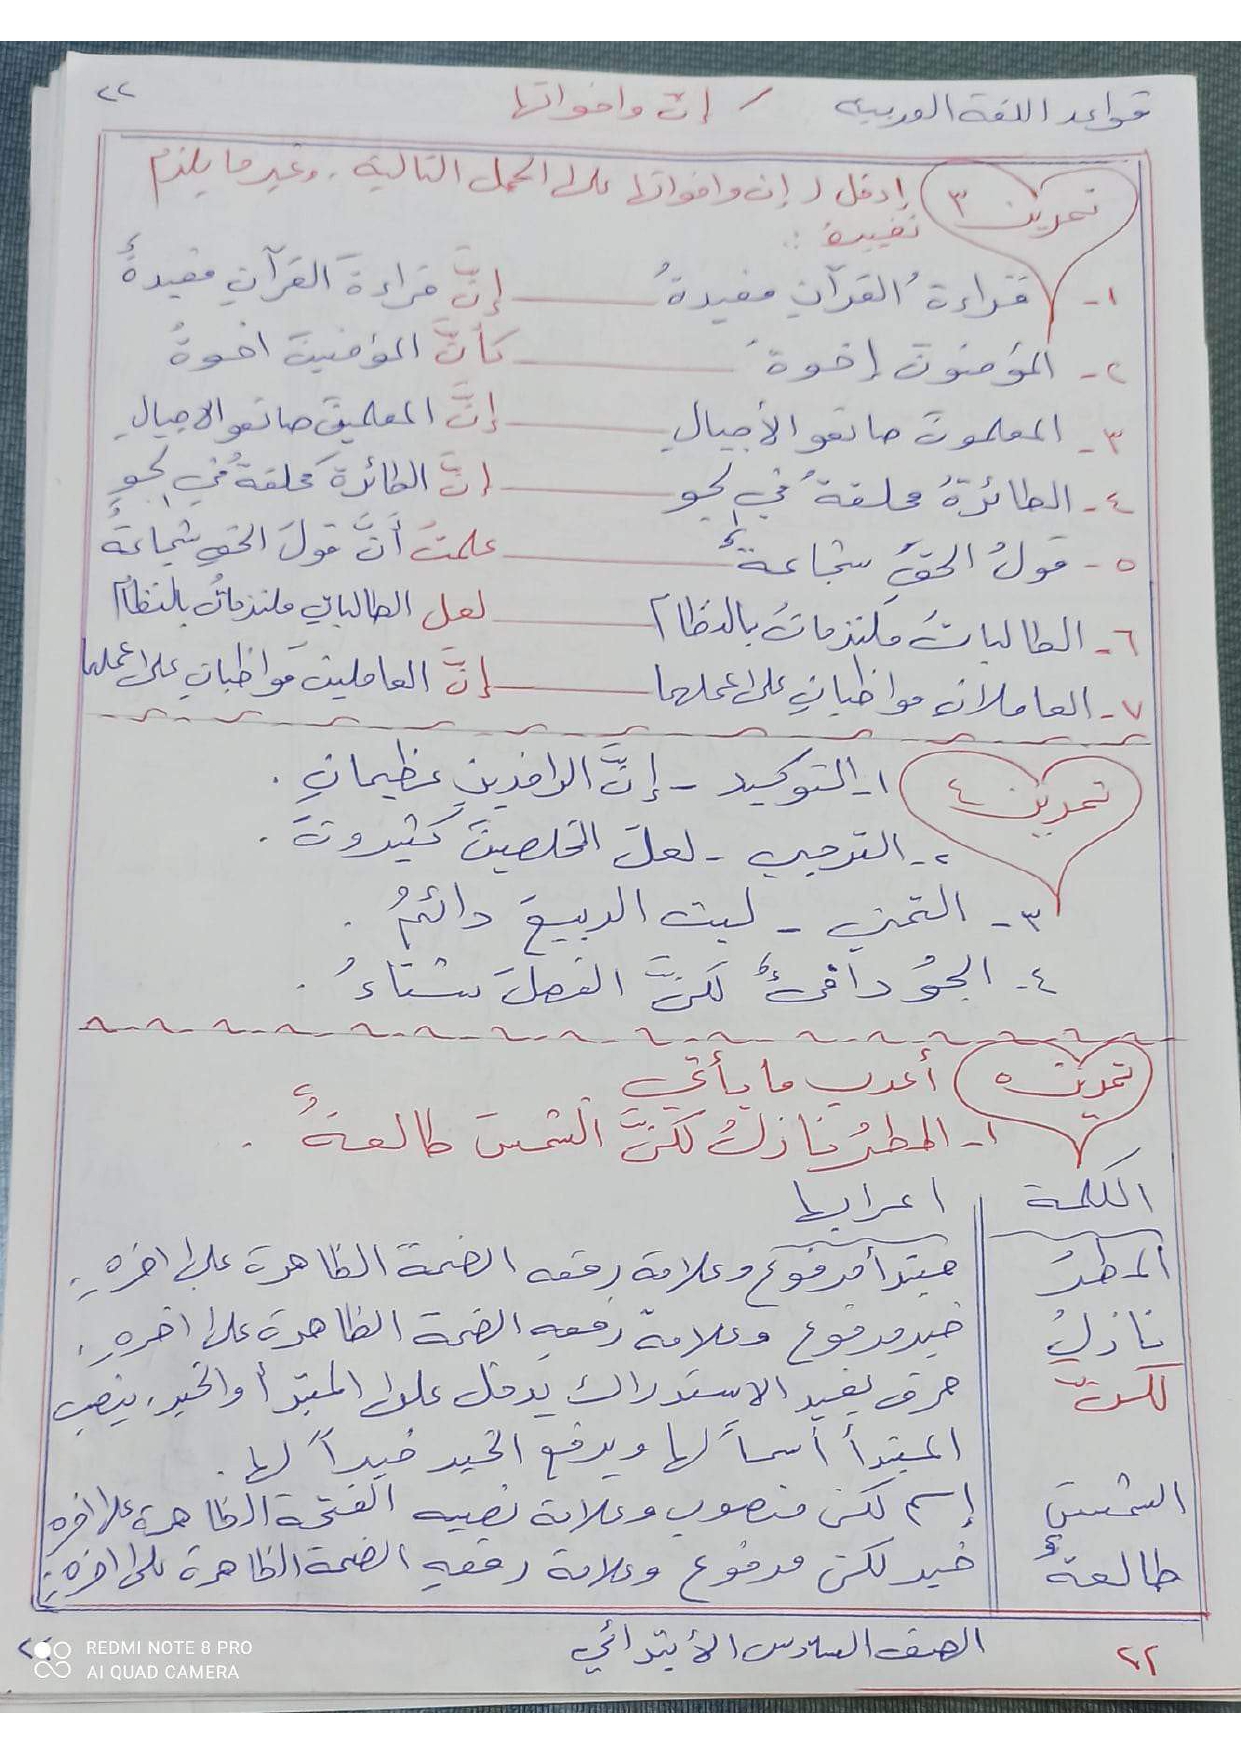 قواعد اللغة العربية / إنّ واخواتها ٢٢
تمرين ٣ إدخل إن واخواتها على الجمل التالية، وغير ما يلزم
تغييره :
١- قراءةُ القرآنِ مفيدةُ ــــ إنَّ قراءةَ القرآنِ مفيدةٌ
٢- المؤمنونَ إخوة ــــ كأنَّ المؤمنينَ اخوةٌ
٣- المعلمونَ صانعو الأجيالِ ــــ إنَّ المعلمينَ صانعو الاجيالِ
٤- الطائرةُ محلقةُ في الجو ــــ انَّ الطائرةَ محلقةُ في الجوِ
٥- قولُ الحقِ شجاعةٌ ــــ علمتُ أنَّ قولَ الحقِ شجاعةٌ
٦- الطالباتُ ملتزماتُ بالنظام ــــ لعل الطالباتِ ملتزماتُ بالنظام
٧- العاملانِ مواظبانِ على عملهما ــــ إنَّ العاملينَ مواظبانِ على عملهما
تمرين ٤ ١- التوكيد - إنَّ الرافدينِ عظيمانِ .
٢- الترجي - لعلَ المخلصينَ كثيرونَ .
٣- التمني - ليت الربيعَ دائمُ .
٤- الجوُ دافئٌ لكنَّ الفصلَ شتاءُ .
تمرين ٥ أعرب ما يأتي
١- المطرُ نازلُ لكنَّ الشمسَ طالعةٌ .
الكلمة اعرابها
المطرُ مبتدأ مرفوع وعلامة رفعه الضمة الظاهرة على اخرهِ.
نازلُ خبر مرفوع وعلامة رفعهِ الضمة الظاهرة على اخرهِ.
لكنَّ حرف يفيد الاستدراك يدخل على المبتدأ والخبر، ينصب
المبتدأ أسماً لها ويرفع الخبر خبراً لها.
الشمسَ إسم لكن منصوب وعلامة نصبه الفتحة الظاهرة على اخره
طالعةٌ خبر لكن مرفوع وعلامة رفعهِ الضمة الظاهرة على اخرهِ.
٢٢ الصف السادس الأبتدائي
REDMI NOTE 8 PRO
AI QUAD CAMERA